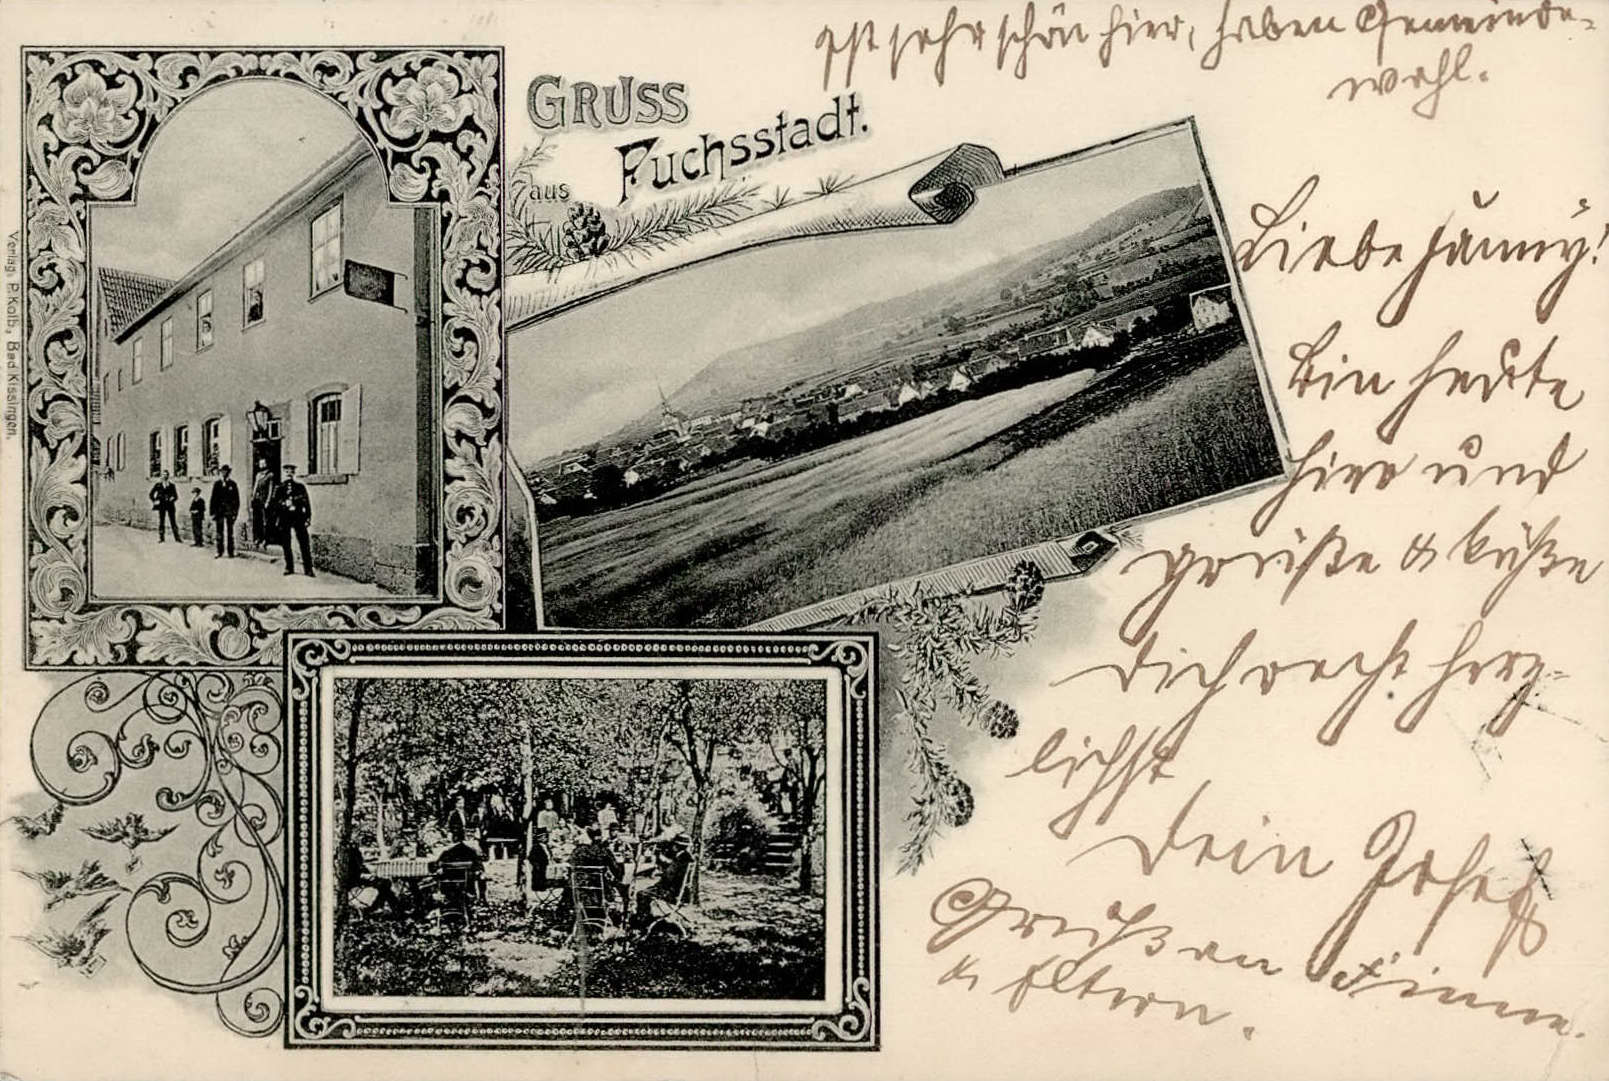 GRUSS
aus Fuchsstadt.
Verlag. P. Kolb, Bad Kissingen.
Ist sehr schön hier, haben Gemeinde-
wahl.
Liebe Fänny!
Bin heute
hier und
grüße & küße
Dich recht herz-
lichst
Dein Josef
Grüße an
& Eltern.